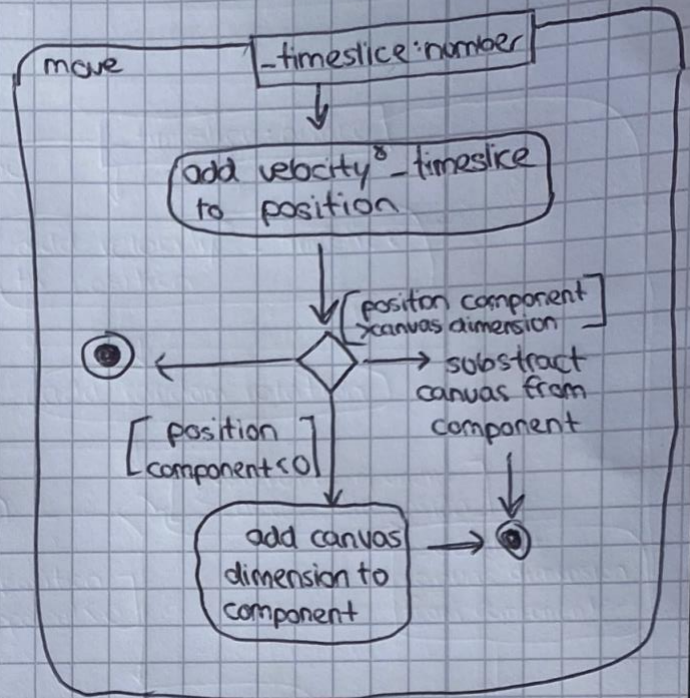 move
_timeslice:number
add velocity * _timeslice
to position
[positon component
>canvas dimension]
substract
canvas from
component
[position
component<0]
add canvas
dimension to
component